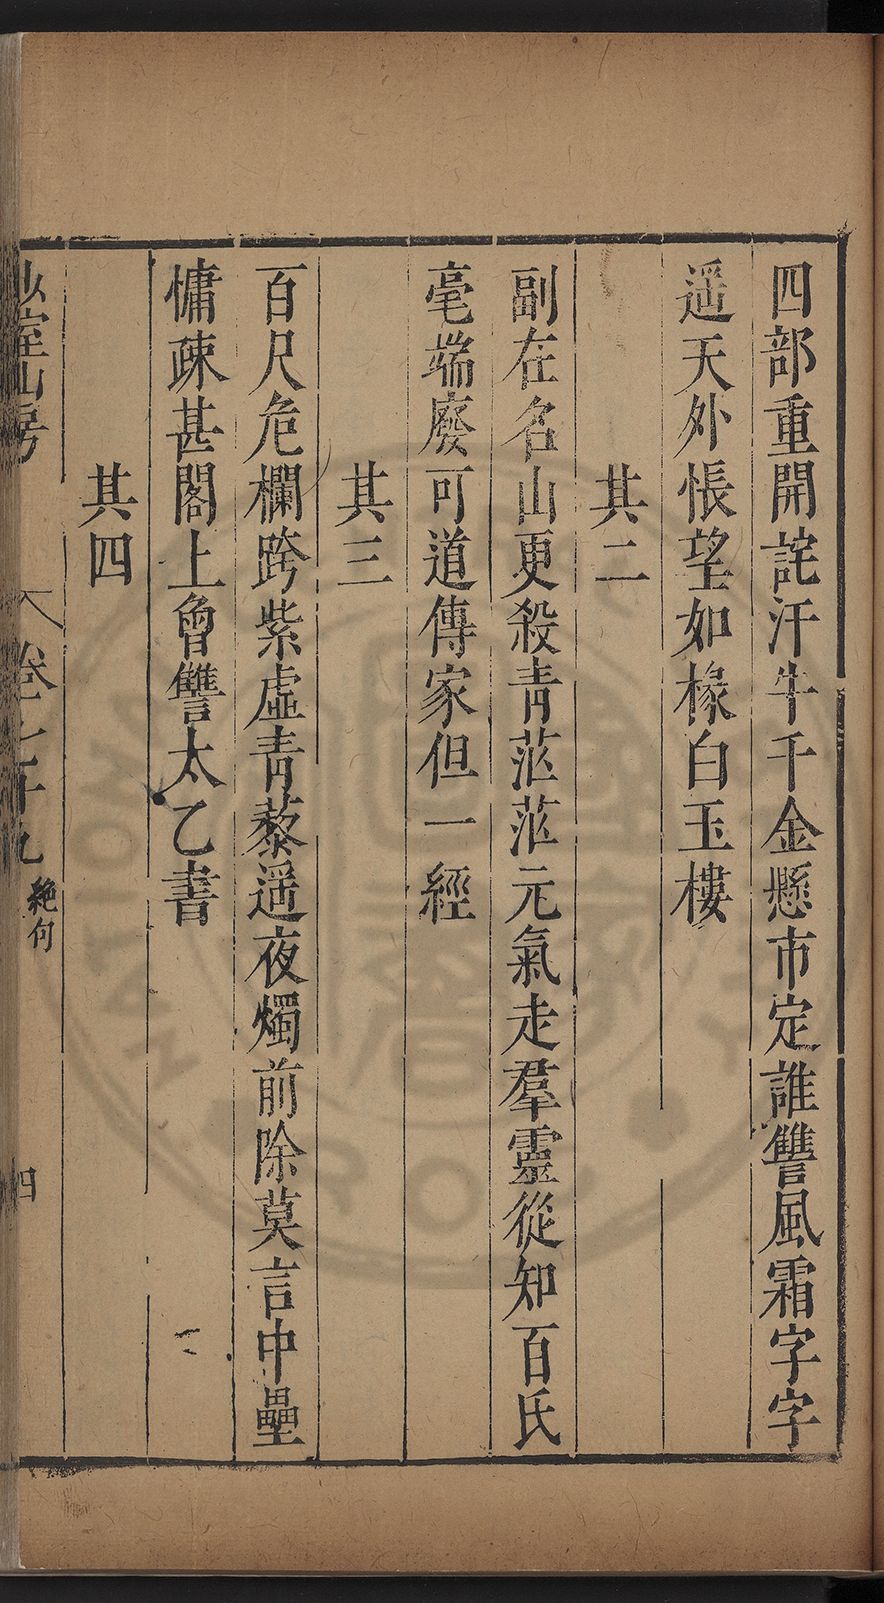 四部重開詫汗牛千金懸市定誰讐風霜字字
遥天外悵望如椽白玉樓
其二
副在名山更殺青茫茫元氣走羣靈從知百氏
毫端廢可道傳家但一經
其三
百尺危欄跨紫虛青藜遥夜燭前除莫言中壘
慵疎甚閣上曾讐太乙書
其四
少室山房 卷之 九 絶句 四